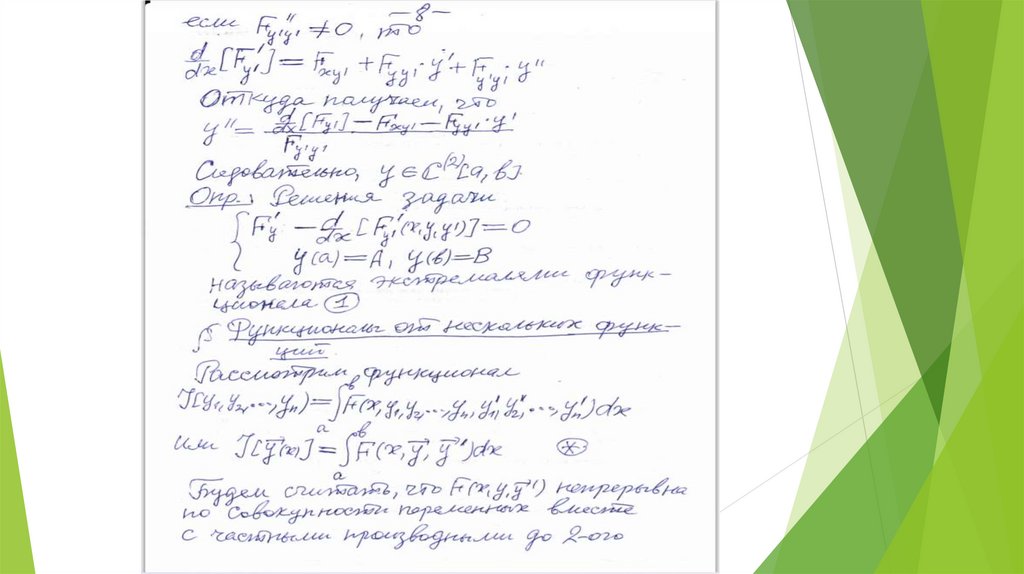 — 8 —
если F''y'y' ≠ 0, то
d/dx [F'y'] = F''xy' + F''yy' · y' + F''y'y' · y''
Откуда получаем, что
y'' = (d/dx [F'y'] − F''xy' − F''yy' · y') / F''y'y'
Следовательно, y ∈ C⁽²⁾[a, в].
Опр.: Решения задачи
{ F'y − d/dx [F'y'(x, y, y')] = 0
y(a) = A, y(в) = B
называются экстремалями функ-
ционала ①
§ Функционалы от нескольких функ-
ций.
Рассмотрим функционал
J[y₁, y₂, ..., yₙ) = ∫ₐᵇ F(x, y₁, y₂, ..., yₙ, y₁', y₂', ..., yₙ') dx
или J[y⃗(x)] = ∫ₐᵇ F(x, y⃗, y⃗') dx (*)
Будем считать, что F(x, y, y⃗') непрерывна
по совокупности переменных вместе
с частными производными до 2-ого